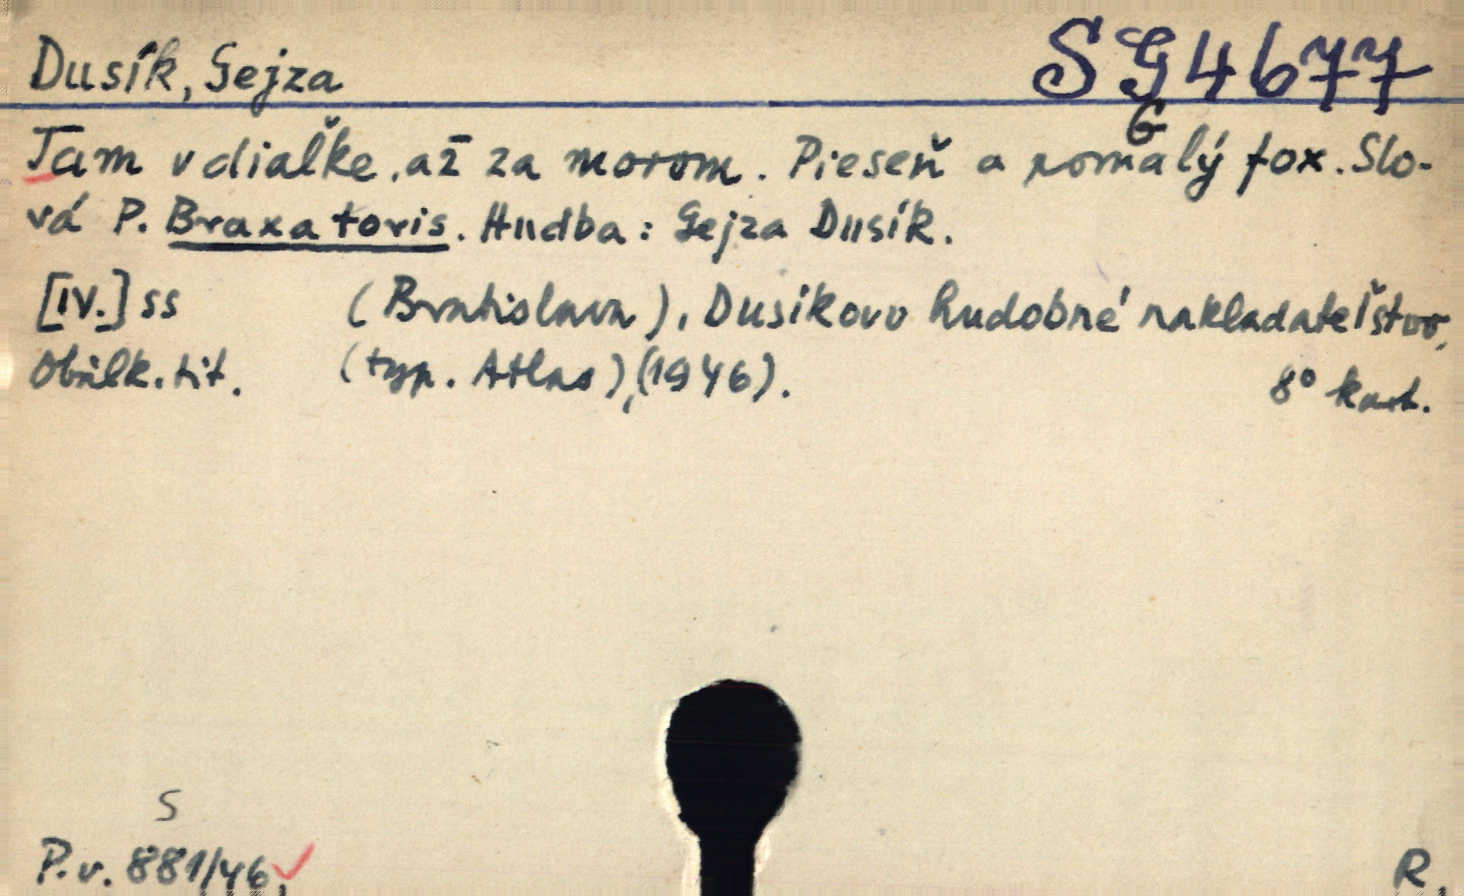 Dusík, Gejza
SG4677
G
Tam v dialke, až za morom. Pieseň a pomalý fox. Slo-
vá P. Braxatoris. Hudba: Gejza Dusík.
[IV.] ss (Bratislava), Dusíkovo hudobné nakladateľstvo,
Obálk. tit. (typ. Atlas), (1946). 8° kart.
S
P.v. 881/46, R.